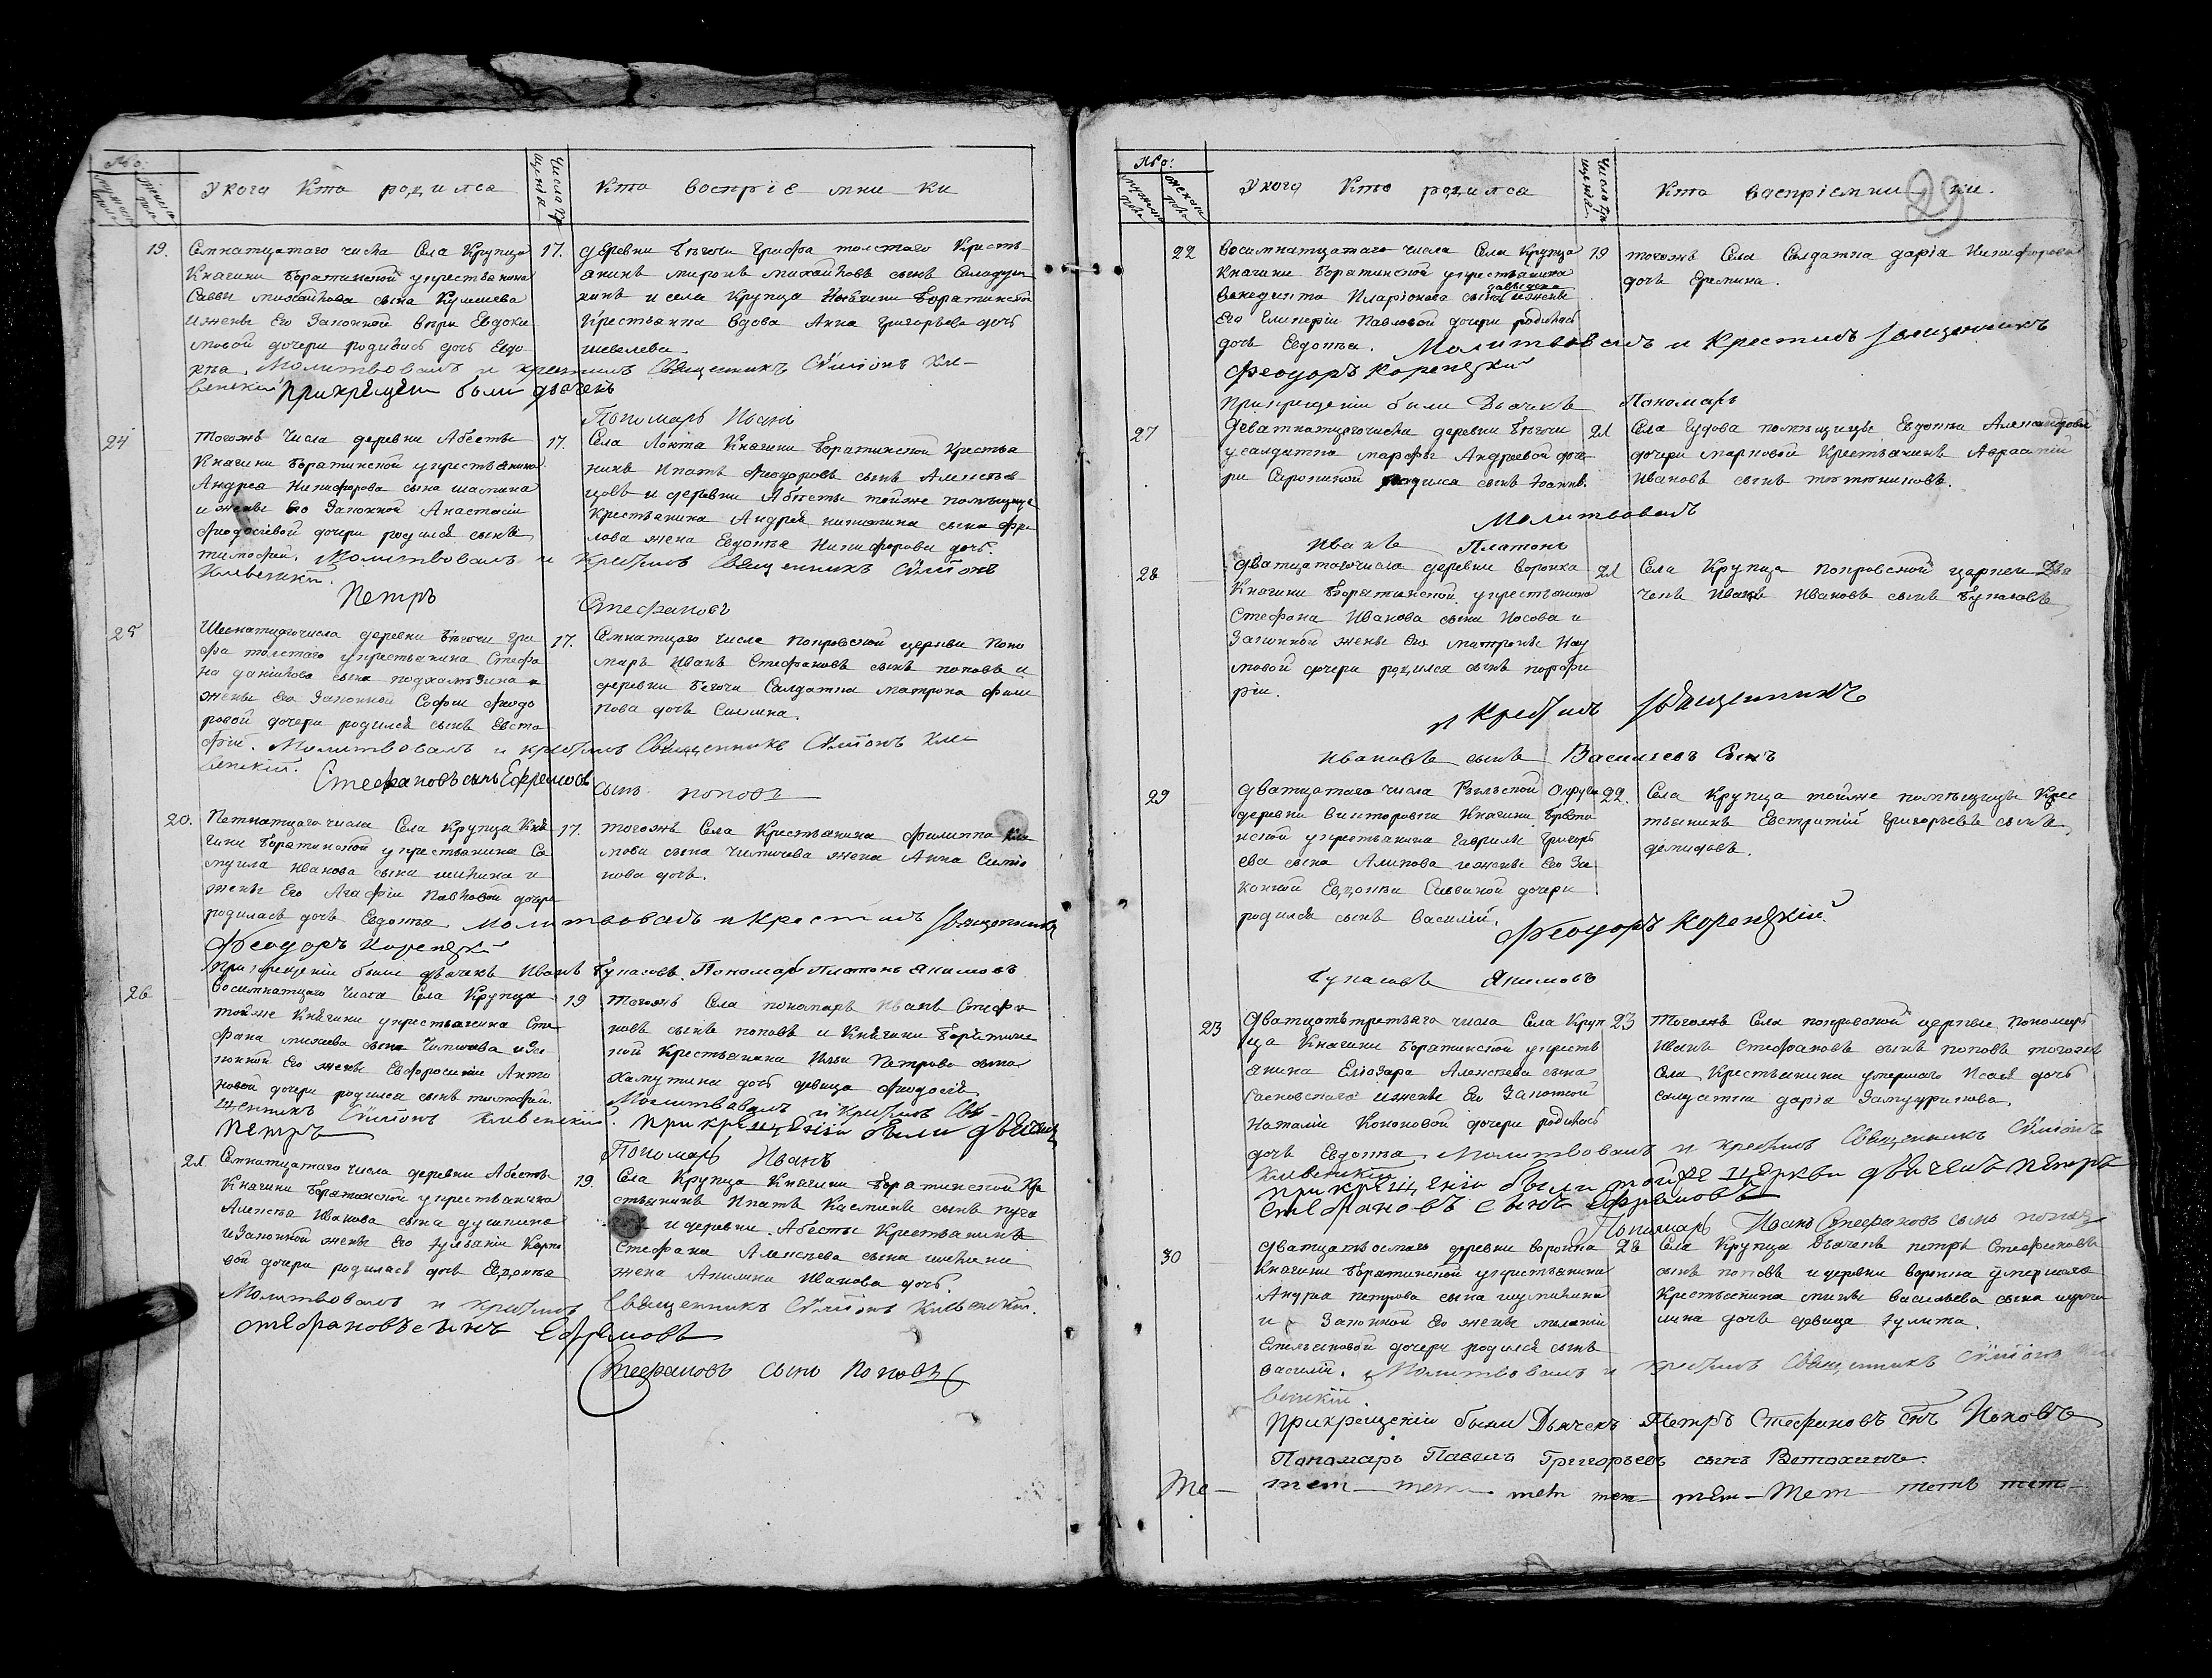 №о:
мужеска полъ
женска полъ
У кого Кто родился
Число крещенія
Кто воспріемники
19.
Семнатцатаго числа Села Крупца
Княгини Боратинской укрестьянина
Саввы михайлова сына Кулешева
ижены Его Законной вѣры Евдоки
мовой дочери родилась дочь Евдо
кѣа. Молитвовалъ и крестилъ Священникъ Сѵмеонъ Кли-
венскій прикрещеніи были дьячекъ
17.
деревни Бѣгочи Графа толстаго Кресть-
янинъ миронъ михайловъ сынъ
и села Крупца Княгини Боратинской
Крестьянка вдова Анна григорьева дочь
шевелева.
Пономарь Иванъ
24
тогожъ числа деревни Абѣсты
Княгини Боратинской укрестьянина
Андрея Никифорова сына шагина
ижены Его Законной Анастасіи
Феодосіевой дочери родился сынъ
тимофей. Молитвовалъ и Крестилъ Священникъ Сѵмеонъ
Кливенскій.
Петръ
17.
Села Локтя Княгини Боратинской Крестья
нинъ Ипатъ Феодоровъ сынъ Алексѣев
цовъ и деревни Абѣсты тойже помѣщицы
Крестьянина Андрея никитина сына Фро
лова жена Евдокѣя Никифорова дочь.
Стефановъ
25
Шеснатцатогочисла деревни Бѣгочи Гра
фа толстаго укрестьянина Стефа
на данилова сына подхалюзина и
жены Его Законной Софіи Феодо
ровой дочери родился сынъ Евста
фій. Молитвовалъ и крестилъ Священникъ Сѵмеонъ Кли
венскій.
Стефановъ сынъ Ефремовъ
17.
Семнатцаго числа покровской церкви Поно
марь Иванъ Стефановъ сынъ поповъ и
деревни Бѣгочи Салдатка матрона Фили
пова дочь Силкина.
сынъ поповъ
20.
Петнатцаго числа Села Крупца Кня
гини Боратинской укрестьянина Са
муила Иванова сына шилина и
жены Его Агафіи Павловой дочери
родилась дочь Евдокѣя Молитвовалъ и Крестилъ Священникъ
Феодоръ Коренецкій
При крещеніи были дьячекъ Иванъ Букасовъ. Пономарь Платонъ Якимовъ
17.
тогожъ Села Крестьянина Филиппа
мова сына Чиличова жена Анна Симіо
нова дочь.
26
Восимнатцаго числа Села Крупца
тойже Княгини укрестьянина Сте
фана михеева сына Чиличова иЗа
конной Его жены Евфросиніи Анто
новой дочери родился сынъ тимофей.
щенникъ Сѵмеонъ Кливенскій.
Петръ
19
тогожъ Села пономарь Иванъ Стефа
новъ сынъ поповъ и Княгини Боратинс
кой Крестьянина Ильи Петрова сына
Хамутина дочь девица Феодосія
Молитвовалъ и Крестилъ Свя-
прикрещеніи были дьячекъ
Пономарь Иванъ
21.
Семнатцатаго числа деревни Абесты
Княгини Боратинской укрестьянина
Алексѣя Иванова сына душкина
иЗаконной жены Его Іульяніи Карпо
вой дочери родилася дочь Евдокѣя
Молитвовалъ и Крестилъ Священникъ Сѵмеонъ Кливенскій.
стефановъ сынъ Ефремовъ
19.
Села Крупца Княгини Боратинской Кре
стьянинъ Ипатъ Касминъ сынъ
и деревни Абесты Крестьянина
Стефана Алексѣева сына шилина
жена Акилина Иванова дочь.
Стефановъ сынъ Поповъ
№о:
мужеска полъ
женска полъ
У кого Кто родился
Число крещенія
Кто воспріемники.
29
22
Восимнатцатаго числа Села Крупца
Княгини Боратинской укрестьянина
Венедикта Иларіонова сына ижены
Его Гликеріи Павловой дочери родилась
дочь Евдокѣа. Молитвовалъ и Крестилъ Священникъ
Феодоръ Коренецкій
Прикрещеніи были Дьячекъ
19
тогожъ Села Салдатка дарія Никифорова
дочь Еремина.
Пономарь
27
Деватнатцогочисла деревни Бѣгочи
усалдатки марфы Андреевой доче
ри Сарокиной родился сынъ Іоаннъ.
Молитвовалъ
Иванъ Платонъ
21
Села Гудова помѣщицы Евдокѣи Александровой
дочери марковой Крестьянинъ Аврамтій
Ивановъ сынъ толтониковъ.
28
дватцатагочисла деревни Воронка
Княгини Боратинской укрестьянина
Стефана Иванова сына Носова и
Законной жены Его матроны Нау
мовой дочери родился сынъ порфи
рій.
и Крестилъ Священникъ
Ивановъ сынъ Васильевъ Сынъ
21
Села Крупца покровской церкви Дья
чекъ Иванъ Ивановъ сынъ Букасовъ
29
дватцатаго числа Рыльской Округи
деревни Викторовки Княгини Борати
нской укрестьянина Гаврилы Григорь
ева сына Алипова ижены Его За
конной Евдокѣи Саввиной дочери
родился сынъ Василій.
Феодоръ Коренецкій.
Букасовъ Якимовъ
22.
Села Крупца тойже помѣщицы Крес
тьянинъ Евстратій григорьевъ сынъ
демидовъ.
23
Дватцатьтретьяго числа Села Круп
ца Княгини Боратинской укресть
янина Еліозара Алексѣева сына
Сасновскаго ижены Его Законной
Наталіи Кононовой дочери родилась
дочь Евдокѣа. Молитвовалъ и крестилъ Священникъ Сѵмеонъ
Кливенскій
прикрещеніи были той же церкви дьячекъ петръ
стефановъ сынъ Ефремовъ
Пономарь Иванъ Стефановъ сынъ поповъ
23
Тогожъ Села покровской церкви Пономарь
Иванъ Стефановъ сынъ поповъ тогожъ
Села Крестьянина умершаго Исаея дочь
салдатка дарія Замуруикова.
30
дватцатьосмаго деревни воронка
Княгини Боратинской укрестьянина
Андрея петрова сына шумакина
и Законной Его жены маланіи
Емельяновой дочери родился сынъ
василій. Молитвовалъ и крестилъ Священникъ Сѵмеонъ Кли
венскій.
Прикрещеніи были Дьячекъ Петръ Стефановъ снъ Поповъ
Пономарь Павелъ Григорьевъ сынъ Ветохинъ.
28
Села Крупца Дьячекъ петръ Стефановъ
сынъ поповъ идеревни воронка умершаго
Крестьянина михея Васильева сына
лина дочь девица Іулита.